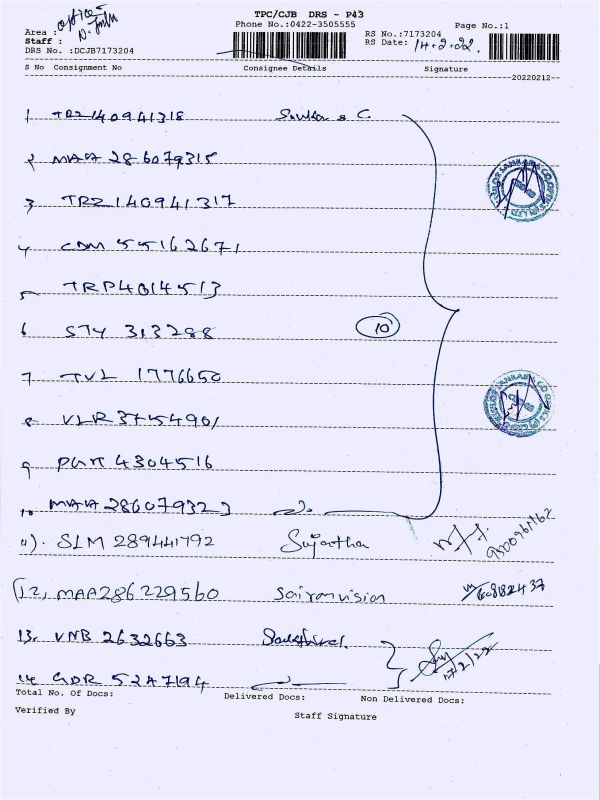 TPC/CJB DRS - P43
Phone No.:0422-3505555
Page No.:1
Area : office
Staff :
RS No.:7173204
DRS No. :DCJB7173204
RS Date: 14-2-22.
S No Consignment No Consignee Details Signature
--20220212--
1 TRZ140941318
2 MAA 286079315
3 TRZ140941317
4 CDM 55162671
5 TRP4014513
6 STY 313288
10
7 TVL 1776650
8 VLR3754901
9 PNT 4304516
10 MAA 286079323
11). SLM 289441792 Sujartha
12, MAA286229560 Sairamvision
13. VNB 2632663
14 GDR 5247194
Total No. Of Docs: Delivered Docs: Non Delivered Docs:
Verified By
Staff Signature